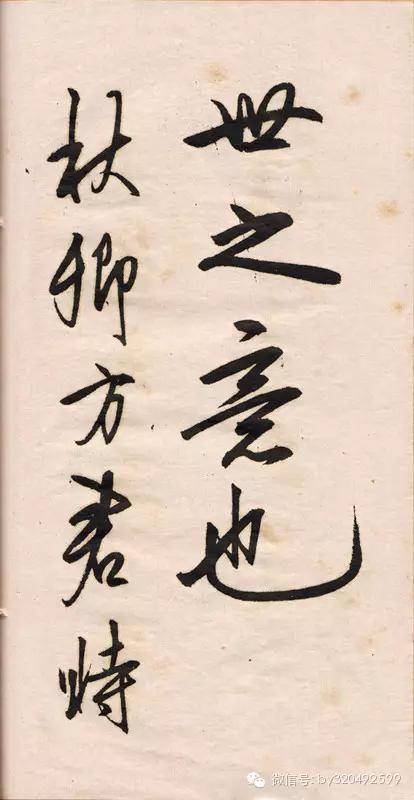 世之意也
秋卿方君時
微信号: by320492599